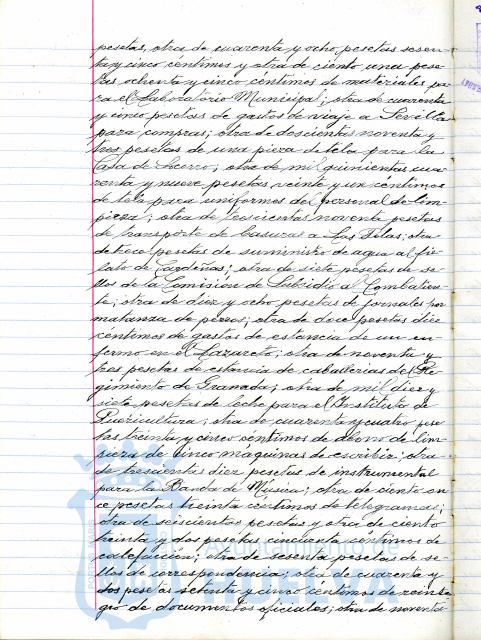 pesetas, otra de cuarenta y ocho pesetas sesen-
ta y cinco céntimos y otra de ciento una pese
tas ochenta y cinco céntimos de materiales pa-
ra el Laboratorio Municipal; otra de cuarenta
y cinco pesetas de gastos de viaje a Sevilla
para compras; otra de doscientas noventa y
tres pesetas de una pieza de tela para la
Casa de Socorro; otra de mil quinientas cua-
renta y nueve pesetas veinte y un céntimos
de tela para uniformes del personal de lim-
pieza; otra de trescientas noventa pesetas
de transporte de basuras a Las Filas; otra
de trece pesetas de suministro de agua al fie-
lato de Cardeñas; otra de siete pesetas de se-
llos de la Comisión de Subsidio al Combatien-
te; otra de diez y ocho pesetas de jornales por
matanza de perros; otra de doce pesetas diez
céntimos de gastos de estancia de un en-
fermo en el Lazareto; otra de noventa y
tres pesetas de estancia de caballerías del Re-
gimiento de Granada; otra de mil diez y
siete pesetas de leche para el Instituto de
Puericultura; otra de cuarenta y cuatro pese
tas treinta y cinco céntimos de abono de lim-
pieza de cinco maquinas de escribir; otra
de trescientas diez pesetas de instrumental
para la Banda de Música; otra de ciento on-
ce pesetas treinta céntimos de telegramas;
otra de seiscientas pesetas y otra de ciento
treinta y dos pesetas cincuenta céntimos de
calefacción; otra de sesenta pesetas de se-
llos de correspondencia; otra de cuarenta y
dos pesetas setenta y cinco céntimos de reinte-
gro de documentos oficiales; otra de noventa